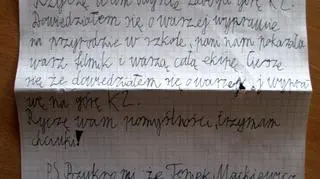 Życzę wam abyście zdobyli górę K2.
Dowiedziałem się o waszej wyprawie
na przyrodzie w szkole, pani nam pokazała
wasz filmik i waszą całą ekipę. Cieszę
się że dowiedziałem się o waszej wypra
wę na górę K2.
Życzę wam pomyślności, trzymam
kciuki!
PS. Przykro mi, że Tomek Mackiewicz